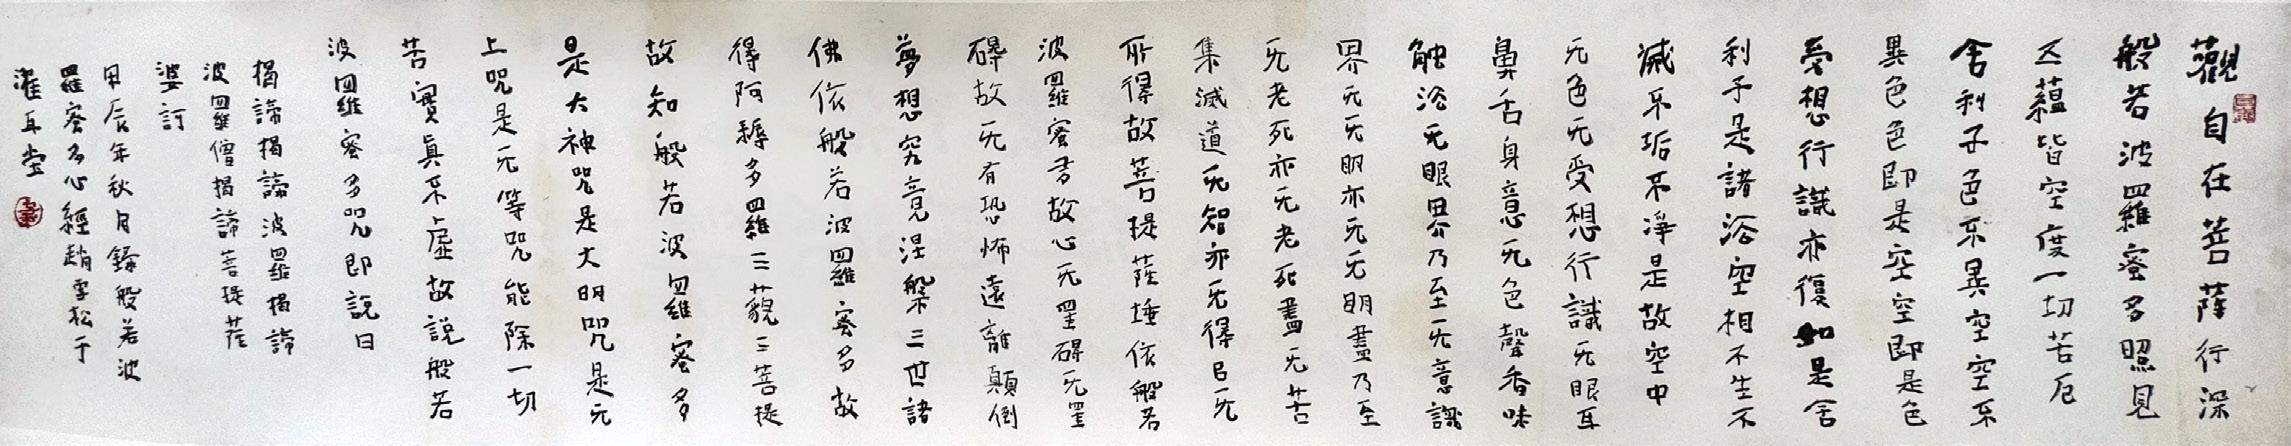 觀自在菩薩行深
般若波羅蜜多照見
五蘊皆空度一切苦厄
舍利子色不異空空不
異色色即是空空即是色
受想行識亦復如是舍
利子是諸法空相不生不
滅不垢不淨是故空中
无色无受想行識无眼耳
鼻舌身意无色聲香味
觸法无眼界乃至无意識
界无无明亦无无明盡乃至
无老死亦无老死盡无苦
集滅道无智亦无得以无
所得故菩提薩埵依般若
波羅蜜多故心无罣碍无罣
碍故无有恐怖遠離顛倒
夢想究竟涅槃三世諸
佛依般若波羅蜜多故
得阿耨多羅三藐三菩提
故知般若波羅蜜多
是大神咒是大明咒是无
上咒是无等咒能除一切
苦實真不虛故說般若
波羅蜜多咒即說曰
揭諦揭諦波羅揭諦
波羅僧揭諦菩提薩
婆訶
甲辰年秋月錄般若波
羅蜜多心經趙雪松于
耳堂